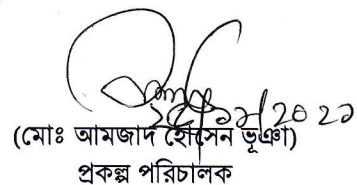 (মোঃ আমজাদ হোসেন ভূঞা)
প্রকল্প পরিচালক